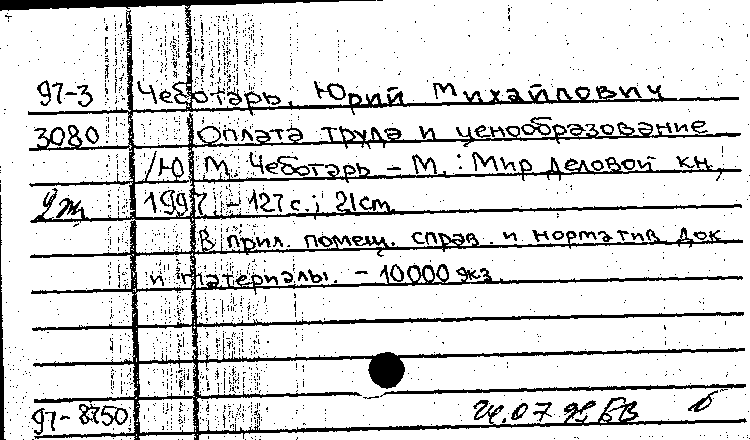 97-3 Чеботарь, Юрий Михайлович
3080 Оплата труда и ценообразование
/Ю. М. Чеботарь – М.: Мир деловой кн,
1997. – 127 с.; 21 cm.
В прил. помещ. справ. и норматив док
и материалы. – 10000 экз.
97-8750